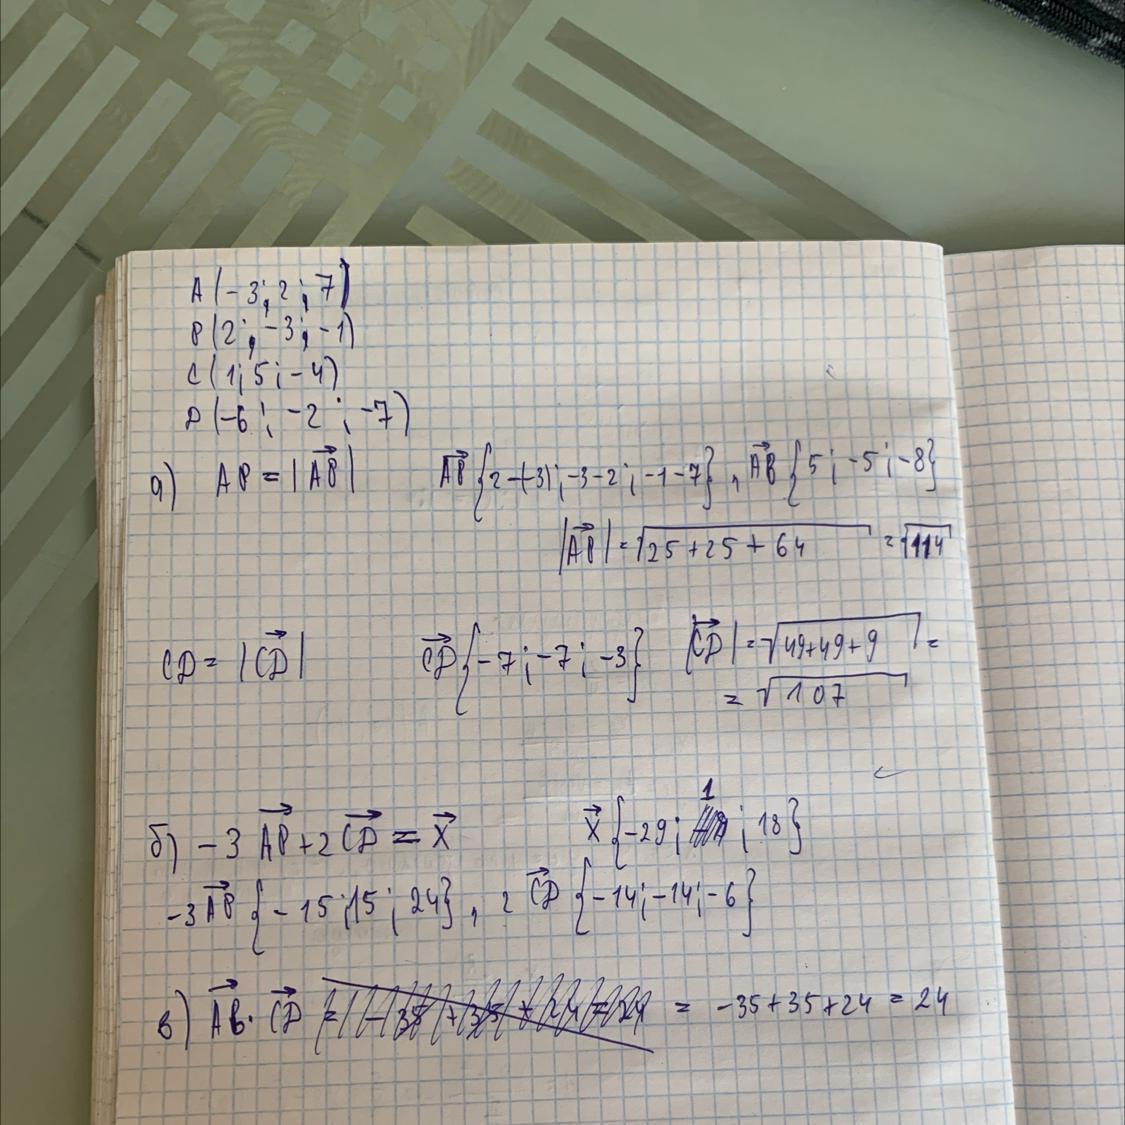 A(-3; 2; 7)
B(2; -3; -1)
C(1; 5; -4)
D(-6; -2; -7)
а) AB = |AB| AB{2-(-3); -3-2; -1-7}, AB{5; -5; -8}
|AB| = √25+25+64 = √114
CD = |CD| CD{-7; -7; -3} |CD| = √49+49+9 =
= √107
б) -3 AB + 2 CD = X X{-29; 1; 18}
-3 AB{-15; 15; 24}, 2 CD{-14; -14; -6}
в) AB · CD = -35+35+24 = 24